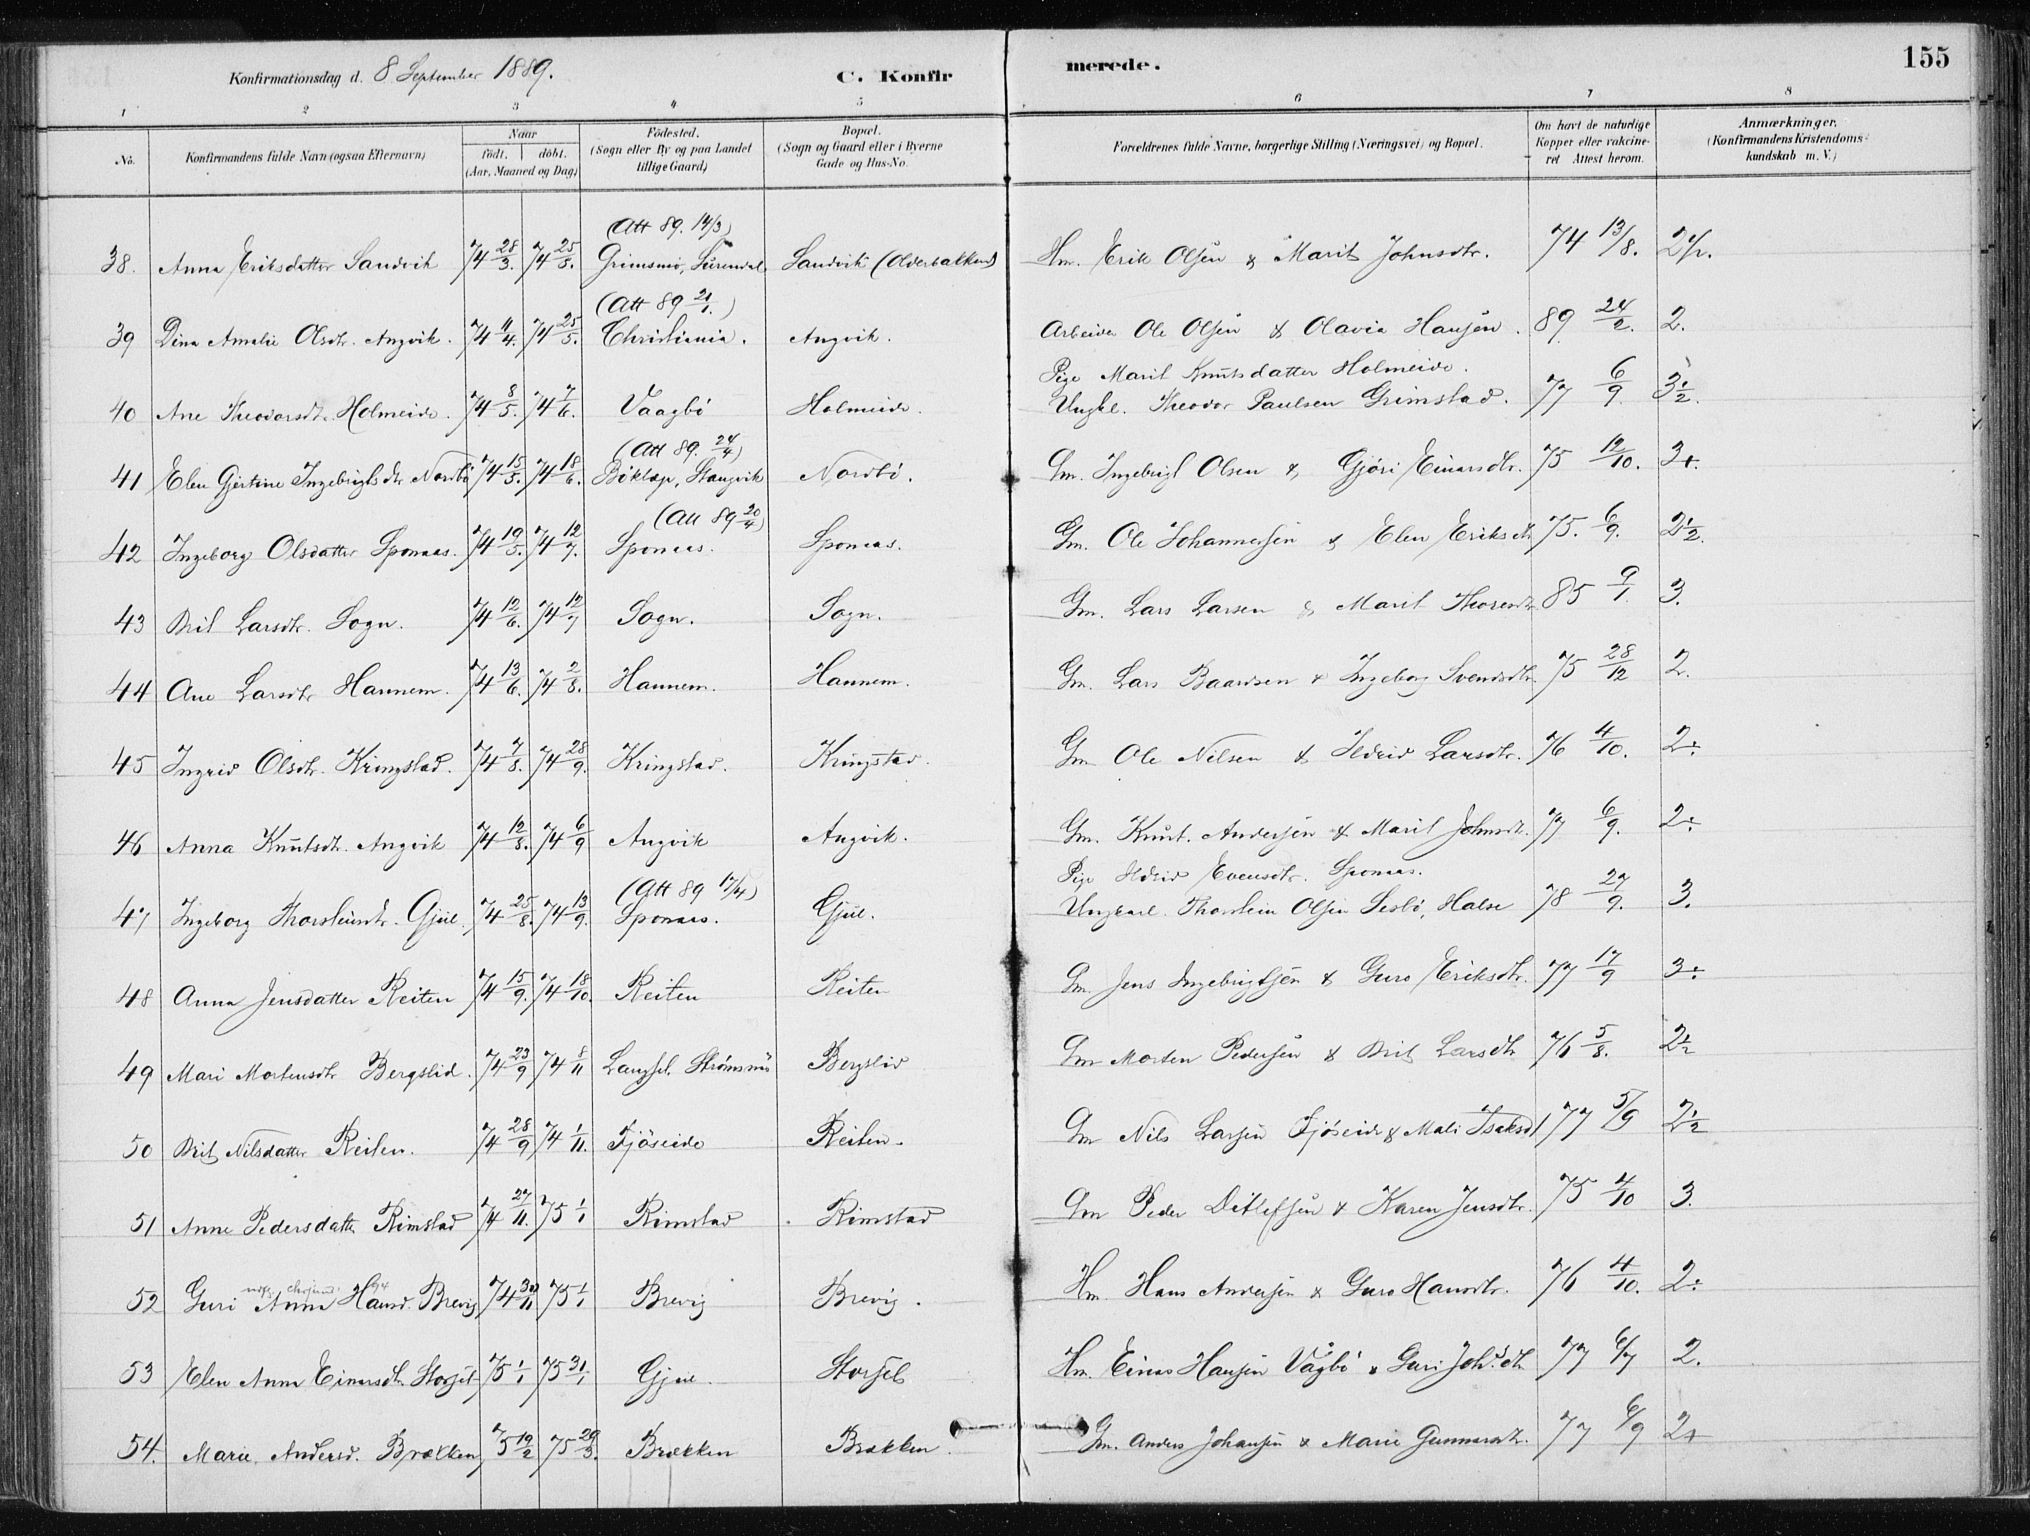 Konfirmationsdag d. 8 September 1889. C. Konfirmerede. 155
1 2 3 4 5 6 7 8
No. Konfirmandens fulde Navn (ogsaa Efternavn) Naar födt. döbt. (Aar, Maaned og Dag) Födested. (Sogn eller By og paa Landet tillige Gaard) Bopæl. (Sogn og Gaard eller i Byerne Gade og Hus-No. Forældrenes fulde Navne, borgerlige Stilling (Næringsvei) og Bopæl. Om havt de naturlige Kopper eller vakcineret Attest herom. Anmærkninger. (Konfirmandens Kristendomskundskab m. V.)
(Att 89. 14/3)
38. Anna Eriksdatter Sandvik 74 28/3. 74 25/5. Grimsmö, Surendal Sandvik (Olderbakken) Hm. Erik Olsen & Marit Johnsdtr. 74 13/8.
(Att 89 21/1.)
39 Dina Amalie Olsdtr. Angvik. 74 11/4. 74 25/5. Christiania. Angvik. Arbeider Ole Olsen & Olavia Hansen. 89 24/2. 2.
Pige Marit Knutsdatter Holmeide.
40 Ane Theodorsdt. Holmeide. 74 8/5. 74 7/6. Vaagbö Holmeide. Ungkl. Theodor Paulsen Grimstad. 77 6/9. 3½.
(Att 89. 24/4)
41 Elen Gjertine Ingebrigtsdtr Nordbö 74 15/5. 74 18/6. Böklep, Stangvik Nordbö. Gm. Ingebrigt Olsen & Gjöri Einarsdtr. 75 12/10. 3+.
(Att 89 20/4)
42 Ingeborg Olsdatter Sponaas. 74 19/5. 74 12/7. Sponaas. Sponaas. Gm. Ole Johannesen & Elen Eriksdt 75. 6/9. 2½.
43 Brit Larsdtr. Sogn. 74 12/6. 74 12/7 Sogn. Sogn. Gm. Lars Larsen & Marit Thoresdtr 85 9/1 3.
44 Ane Larsdtr Hannem. 74 13/6. 74 2/8. Hannem. Hannem. Gm. Lars Baardsen & Ingeborg Svendsdtr. 75 28/12 2.
45 Ingrid Olsdtr. Kringstad. 74 7/8. 74 28/9. Kringstad. Kringstad. Gm Ole Nilsen & Ildrid Larsdtr. 76 4/10. 2÷
46 Anna Knutsdtr. Angvik 74 12/8. 74 6/9 Angvik Angvik. Gm. Knut Andersen & Marit Johnsdt. 77 6/9. 2÷
(Att 89 17/4) Pige Ildrid Evensdtr. Sponaas.
47 Ingeborg Thorsteinsdt. Gjul. 74 25/8. 74 13/9. Sponaas. Gjul. Ungkarl. Thorstein Olsen Sesbö, Halse 78 27/9. 3.
48 Anna Jensdatter Reiten 74 15/9. 74 18/10. Reiten Reiten Gm. Jens Ingebrigtsen & Guro Eriksdtr. 77 17/9 3÷
49 Mari Mortensdtr Bergslid. 74 23/9 74 8/11 Langset, Strömsnæs Bergslid Gm Morten Pedersen & Brit Larsdtr 76 5/8. 2½
50 Brit Nilsdatter Reiten. 74 28/9 74 1/11. Fjöseide Reiten. Gm Nils Larsen Fjöseide & Mali Isaksd 77 5/9 2½
51 Anne Pedersdatt. Rimstad 74 27/11. 75 1/1 Rimstad Rimstad Gm Peder Ditlefsen & Karen Jensdtr. 75 4/10 3.
52 Guri Anna Hansd. Brevig 74 30/11 75 1/1 Brevig Brevig. Hm. Hans Andersen & Guro Hansdtr. 76 4/10. 2÷
53 Elen Anna Einarsdt. Storset 75 1/1 75 31/1 Gjul. Storset Hm. Einar Hansen Vågbö & Guri Johsdt. 77 6/7 2.
54. Marie Andersd. Brækken 75 19/2 75 29/3. Brækken Brækken. Gm. Anders Johansen & Marie Gunnarsdt. 77 6/9 2+